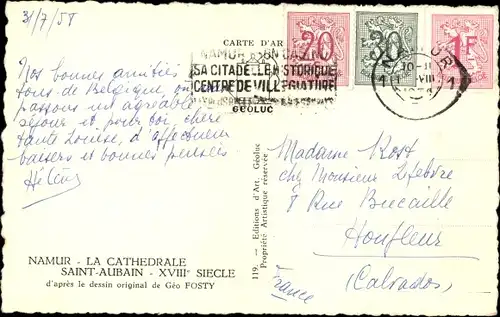 31/7/58
CARTE D'AR
20
30
1F
NAMUR
SA CITADELLE HISTORIQUE
CENTRE DE VILLEGIATURE
GÉOLUC
Nos bonnes amitiés
de Belgique, où nous
passons un agréable
séjour et pour toi, chère
tante Louise, d'affectueux
baisers et bonnes pensées
Hélène
NAMUR - LA CATHEDRALE
SAINT-AUBAIN - XVIIIe SIECLE
d'après le dessin original de Géo FOSTY
119. — Editions d'Art. Géoluc
Propriété Artistique réservée
Madame Kost
chez Monsieur Lefebvre
8 Rue Bucaille
Honfleur
(Calvados)
France